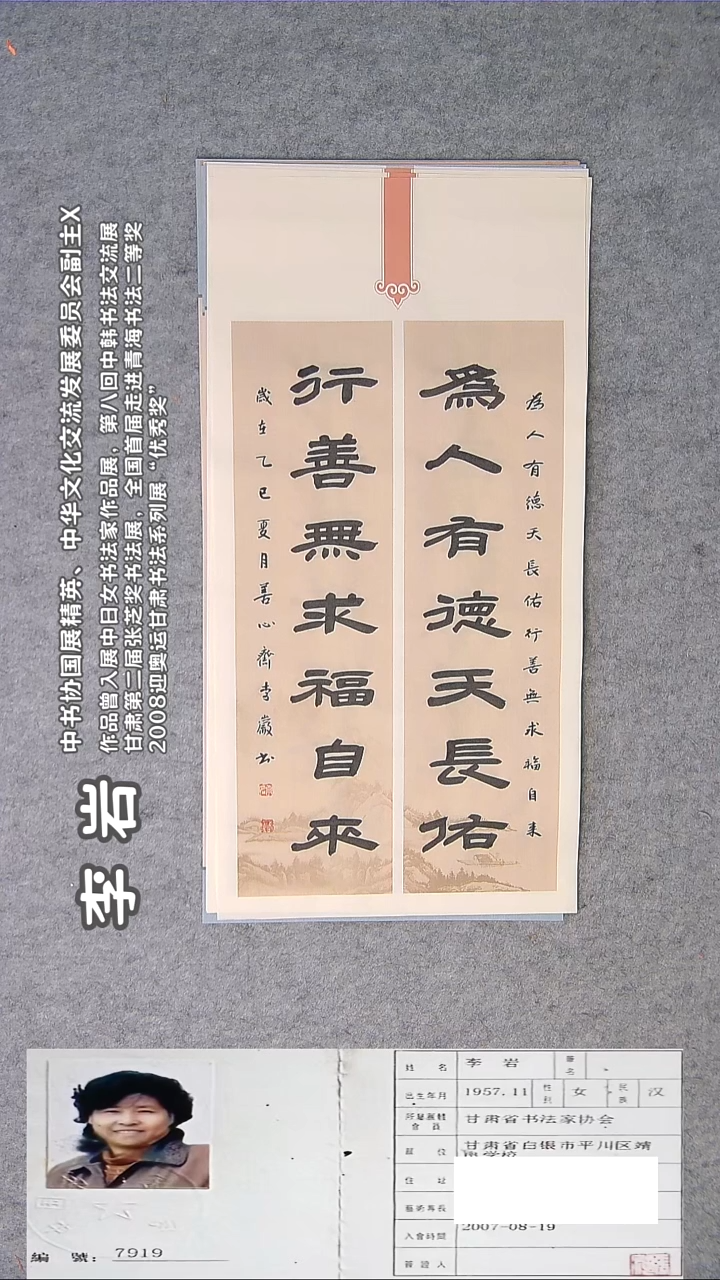 李岩
中书协国展精英、中华文化交流发展委员会副主X
作品曾入展中日女书法家作品展，第八回中韩书法交流展
甘肃第二届张芝奖书法展，全国首届走进青海书法二等奖
2008迎奥运甘肃书法系列展“优秀奖”
为人有德天長佑行善無求福自来
為人有德天長佑
行善無求福自來
歲在乙巳夏月善心齋李巖书
姓名 李岩 筆名
出生年月 1957.11 性别 女 民族 汉
所屬團體會員 甘肃省书法家协会
單位 甘肃省白银市平川区靖
住址
藝術專長
入會時間 2007-08-19
簽證人
編號：7919